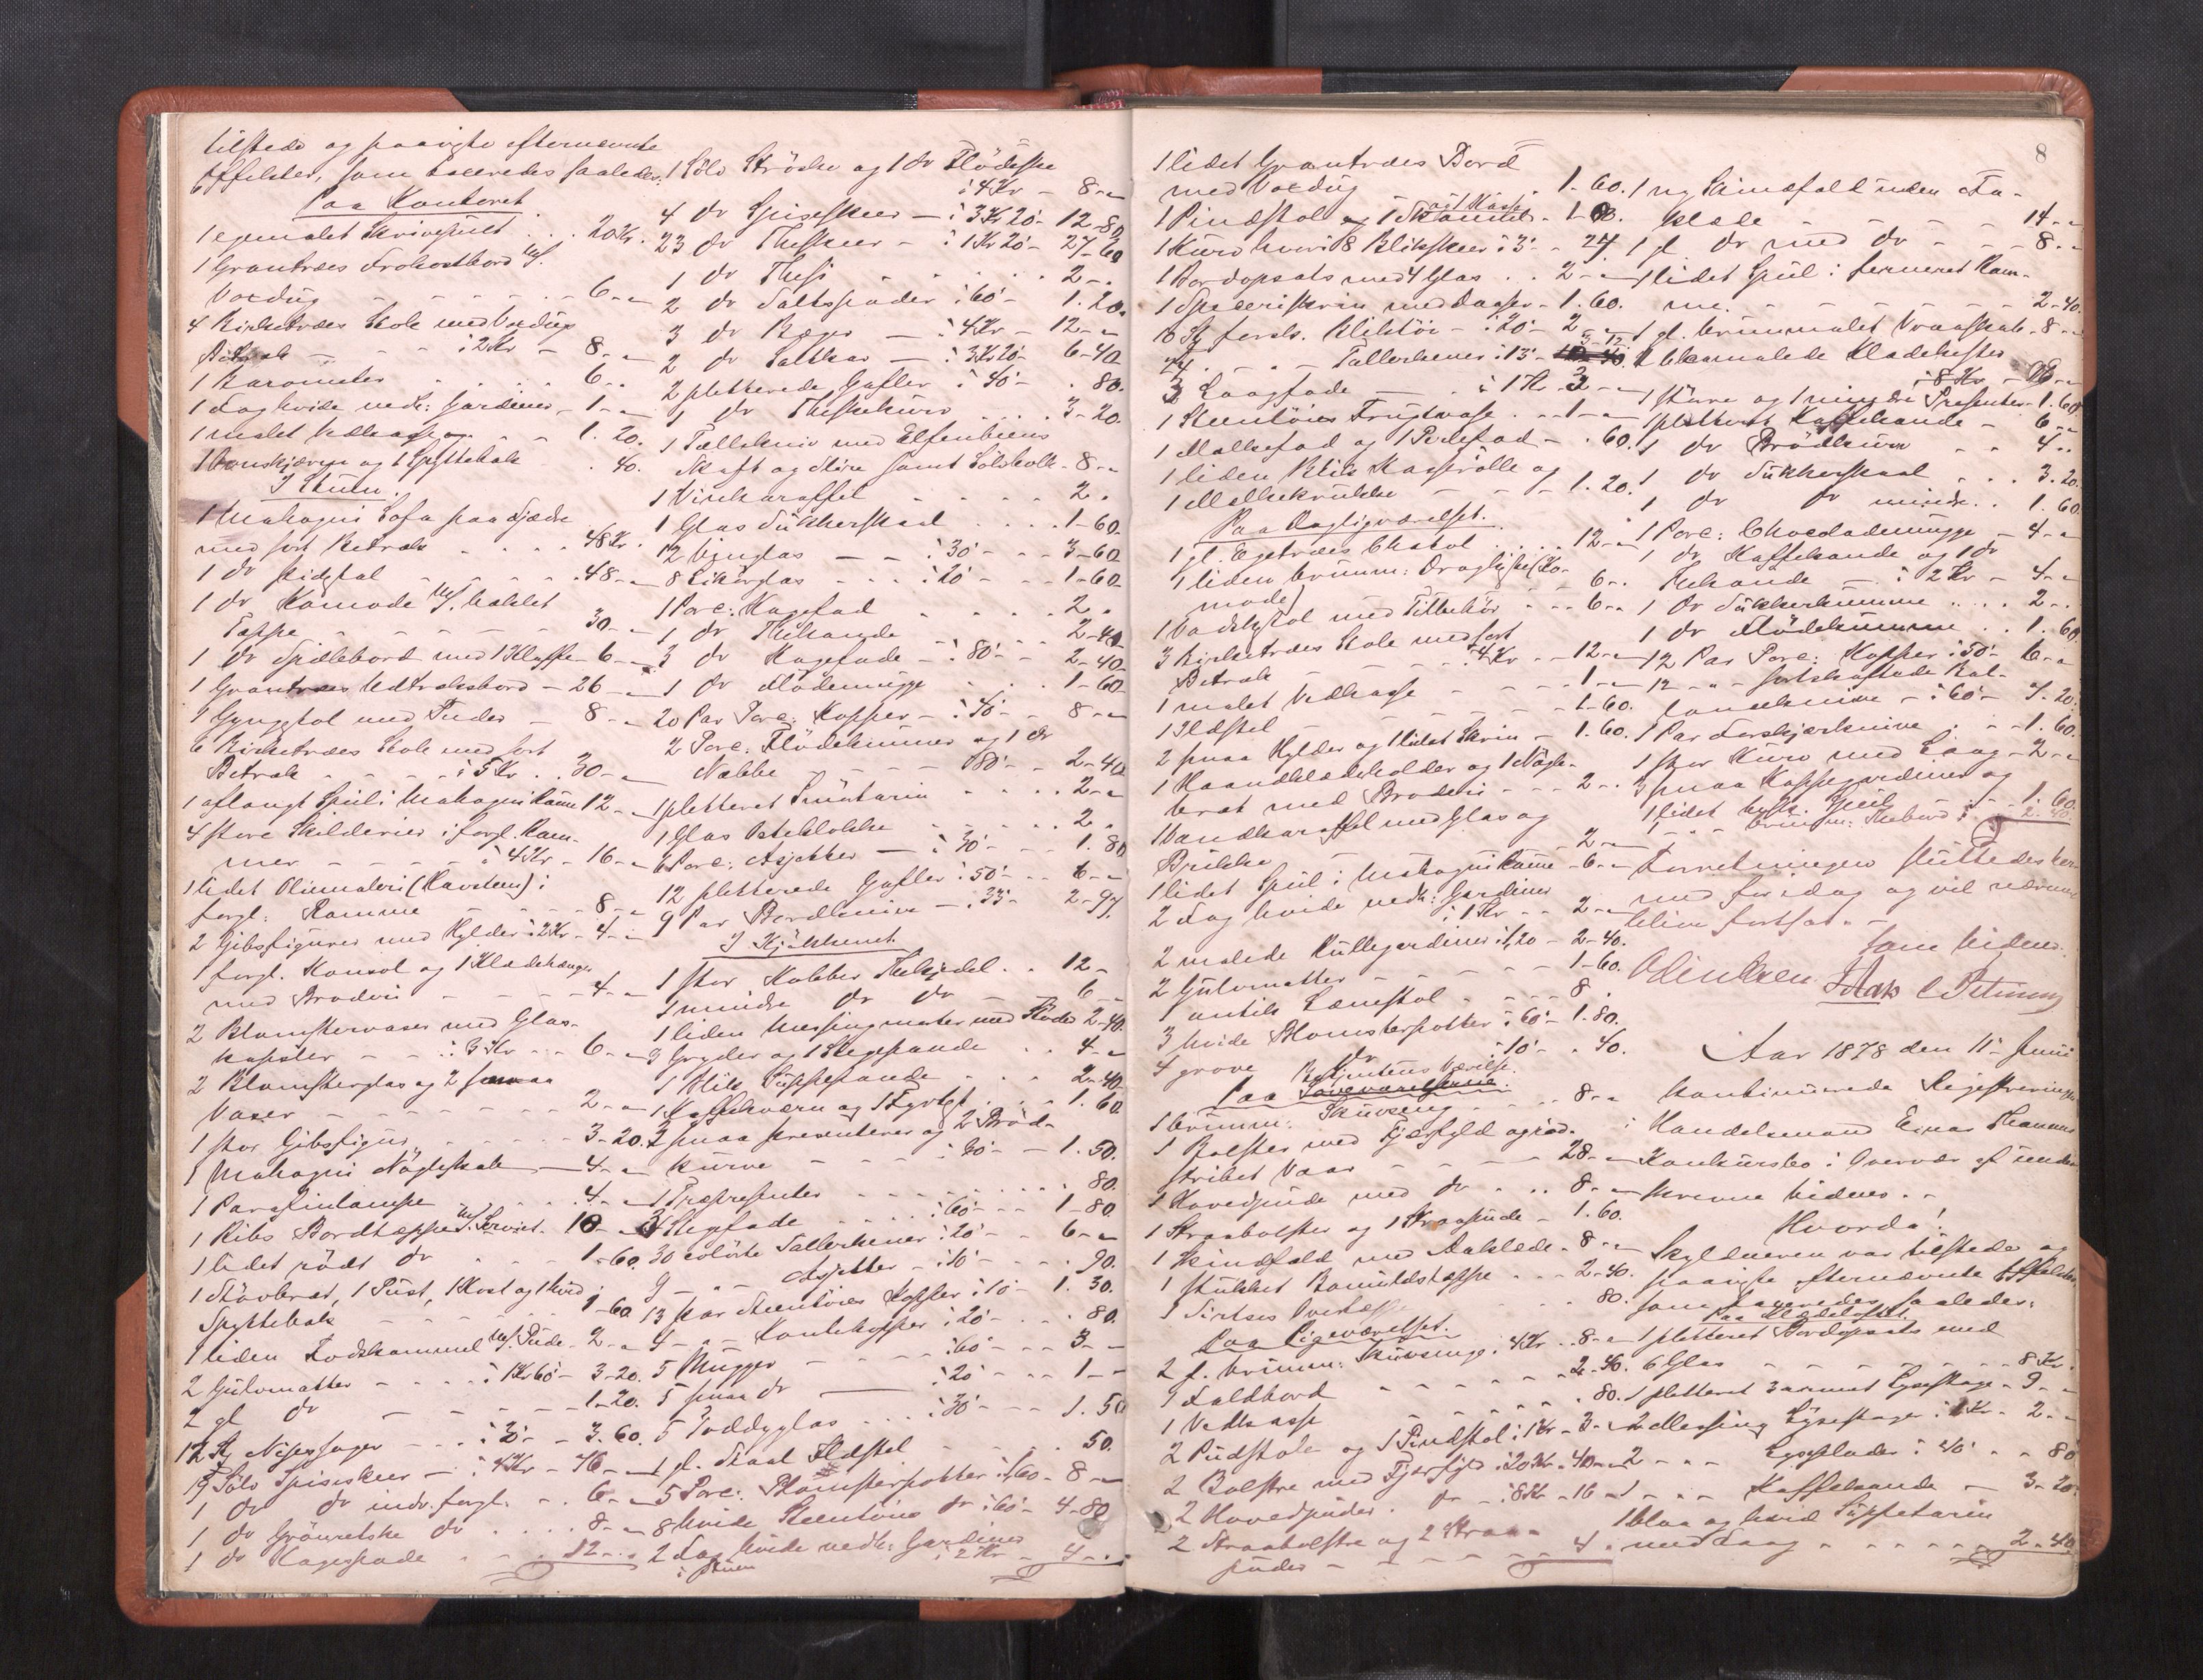 tilstede og paaviste efternævnte
Effekter, som taxeredes saaledes:
Paa Kontoret
1 egemalet Skrivepult . . . 20 Kr.
1 Grantræes Frokostbord m/
Voxdug - - - - - - 6 - "
4 Birketræes Stole med Voxdugs
Betræk - - - à 2 Kr - 8 - "
1 Barometer . . . . . 6 - .
1 Fag hvide nedh: Gardiner - 1 - "
1 malet Vedkasse - - 1.20.
1 og 1 Spyttebak . 40.
I Stuen.
1 Mahogni Sofa paa Fjædre
med sort Betræk . . . . 48 Kr.
1 do - - - - - 48 - "
1 do Komode m/ hæklet
Tæppe - - - - - - 30 - "
1 do Spillebord med 1 Klaffe - 6 - "
1 Grantræes Udtræksbord - 26 - "
1 Gyngstol med Puder - 8 - "
6 Birketræes Stole med sort
Betræk - - - - à 5 Kr . . 30 - "
1 aflangt Speil i Mahogni Ramme 12 - "
4 store Skilderier i forgl. Ram-
mer - - - - - à 4 Kr - 16 - "
1 lidet Oliemaleri (Havsteen) i
forgl: Ramme - - - - 8 - "
2 Gibsfigurer med Hylder à 2 Kr - 4 - "
1 forgl. Konsol og 1 Klædehænger
med Broderi - - - - - 4 - "
2 Blomstervaser med Glas-
kupler - - - à 3 Kr - - 6 - "
2 Blomsterglas og 2 smaa
Vaser - - - - - - - 2 - "
1 stor Gibsfigur - - - - - 3-20.
1 Mahogni Nøgleskab - 4 - "
1 Parafinlampe - - - - - 4 - "
1 Ribs Bordtæppe m/ Serviet. 10 - "
1 lidet rødt do - - - - - 1-60.
1 Støvbræt, 1 Pust, 1 Kost og 1 hvid
Spyttebak - - - - - 1-60
1 liden Fodskammel m/ Pude - 2 - "
2 Gulvmatter - - - - à 1 Kr 60 - 3-20.
2 gl do - - - - - - 1-20.
12 St - - à 30 - - 3.60.
19 Sølv Spiseskeer - à 4 Kr - 76 - "
1 do do indv. forgl. - - 6 - "
1 do Grøntske do . . . . 8 - "
1 do Kagespade . . - . 12 - "
1 Sølv Strøske og 1 do Flødeske
à 4 Kr - 8 - "
4 do Spiseskeer - à 3 Kr 20 - 12-80
23 do Theskeer - à 1 Kr 20 - 27-60
1 do Thesi . . . . . . 2 - .
2 do Saltspader à 60 - 1.20.
3 do Bæger - à 4 Kr - 12 - "
2 do Saltkar - à 3 Kr 20 - 6-40
2 pletterede Gafler à 40 - . 80.
1 do Theskekurv . . . . 3-20.
1 Tællekniv med Elfenbeens
Skaft og Skive samt Sølvholk - 8 - "
1 Vinkaraffel - - - - - 2 .
1 Glas Sukkerskaal . . . . 1-60.
12 Vinglas - - à 30 - - 3-60
8 Likørglas - - - à 20 - - - 1-60
1 Porc: Kagefad . . . . . 2 .
1 do Thekande - . - - . 2-40
3 do Kagefade - à 80 - - 2-40
1 do Flødemugge . . . 1-60
20 Par Porc: Kopper - à 40 - 8 - "
2 Porc: Flødekummer og 1 do
Nabbe - - - - 80 - - 2-40
1 pletteret Fruterin . . . . 2 - "
1 Glas Osteklokke - - - - 2 .
6 Porc: Asjetter - à 30 - - 1.80
12 pletterede Gafler à 50 - - 6 - "
9 Par Bordknive - à 33 - 2-97.
I Kjøkkenet.
1 stor Kobber Thekjedel . . 12 -
1 mindre do do - - 6 -
1 liden Messing morter med Støder 2-40.
3 Gryder og 1 Stegepande . . 4 - "
1 Blik Suppepande . . . 2-40
1 Kaffekværn og 1 Fyrtøi . . . 1.60
2 smaa presenterer og 2 Brød-
kurve - - - - à 60 - - 1.50.
1 Træpresenter - - - - - - - . 80.
3 Stegefade . . . . à 60 - - - 1-80
30 colørte Tallerkener à 20 - - 6 - "
9 - " - Asjetter - à 10 - - - . 90.
13 Par Steentøies Kopper à 10 - 1.30.
4 - " - Kontekopper à 20 - . . 80.
5 Mugger - - - - à 60 - - - 3 - -
5 smaa do - à 20 - - - 1 - -
5 Toddyglas . . . à 30 - - - 1.50
1 gl. Staal Ildstel - - - - - . 50.
5 Porc: Blomsterpotter à 1,60 - 8 - "
8 hvide Steentøies do à 60 - 4-80
2 Fag hvide nedh: Gardiner
i stuen à 2 Kr - 4 - .
8
1 lidet Grantræes Bord
med Voxdug - - - - - 1-60.
1 Pindstol og 1 Skammel
1 Kurv hvori 8 Blikskeer à 3 - - 24.
1 Bordopsats med 4 Glas . . 2 - "
1 Speceriskrin med Daaser - 1.60.
10 St forsk. Bliktøi - à 20 - 2 - "
24 - - - Tallerkener à 13 - 3-12.
3 Laagfade - - - à 1 Kr - 3 - "
1 Steentøies Frugtvase - - 1 - "
1 Melkefad og 1 - . 60.
1 liden Blik Kasserolle og
1 Melkekrukke - - - - 1.20.
Paa Dagligværelset.
1 gl. Egetræes Chatol . . . 12 - "
1 liden brunm: Dragkiste (Ko-
mode) - - - - - - - 6 - .
1 Vadskestol med Tilbehør - - - 6 - "
3 Birketræes Stole med sort
Betræk - - - - à 4 Kr - - 12 - "
1 malet Vedkasse - - - - - 1 - "
1 Ildstel - - - - - - - - 1-60.
2 smaa Hylder og 1 lidet Skrin - 1.60.
1 Haandklædeholder og 1 Nøgle-
bræt med Broderi - - - 2 - .
1 Vandkaraffel med Glas og
Brikke - - - - - - - 2 - "
1 lidet Speil i Mahogni Ramme - 6 - "
2 Fag hvide nedh: Gardiner
à 1 Kr - - 2 - "
2 malede Rullegardiner à 1,20 - 2-40.
2 Gulvmatter - - - - - - 1-60.
1 antik Lænestol . . . . 8 .
3 hvide Blomsterpotter à 60 - 1.80.
4 grove do à 10 - . 40.
Betjentens Værelse.
1 brunm: Skuvseng . . . . 8 - "
1 Bolster med Fjærfyld og rød-
stribet Vaar - - - - - 28 - "
1 Hovedpude med do . . . 8 - "
1 Straabolster og 1 Straapude - 1.60.
1 Skindfeld med Aaklæde - 8 - "
1 stukket Bomuldstæppe . . . 2-40.
1 Sirtses . . 80.
Paa Pigeværelset.
2 f. brunm: Skuvsenge à 4 Kr . . 8 - "
1 Faldbord . . . . . . 2-40.
1 Vedkasse - - - - - - . 80.
2 Pudstole og 1 Pindstol à 1 Kr - 3 - "
2 Bolstre med Fjærfyld à 20 Kr - 40 - "
2 Hovedpuder do - à 8 Kr - 16 - "
2 Straabolstre og 2 Straa-
puder - - - - - - - 4 .
1 ny Skindfeld uden Aa-
klæde - - - - - 14 - "
1 gl. do med do - - - - 8 - "
1 lidet Speil i ferneret Ram-
me. - - - - - - - - - 2-40.
1 gl. brunmalet Vraaskab - 8 - "
2 Klædekister
à 8 Kr
1 større og 1 mindre Presenter - 1.60
1 pletteret Kaffekande - 6 - "
1 do Brødkurv - - 4 - .
1 do Sukkerskaal . . . 3.20.
1 do do mindre . . 1.60.
1 Porc: Chocolademugge - 4 - "
1 do Kaffekande og 1 do
Thekande - à 2 Kr - 4 - "
1 do Sukkerkumme . . . 2 - .
1 do Flødekumme . . 1.60.
12 Par Porc: Kopper à 50 - 6 - "
12 - " - sortskaftede Bal-
lanceknive - à 60 - 7.20.
1 Par Forskjærknive . . - 1.60.
1 stor Kurv med Laag - 2 - "
3 smaa Kappegardiner og
1 lidet Speil - - 1.60.
1 - - brunm: Thebord - - 2.40.
Forretningen sluttedes her-
med for idag og vil nærmere
blive fortsat. -
Som Vidner.
Aar 1878 den 11te Juni
kontinueredes Registreringen
i Handelsmand Einar
Konkursbo i Overvær af under-
skrevne Vidner. -
Hvorda!
Skyldneren var tilstede og
paaviste efternævnte Effekter
som taxeredes saaledes:
1 pletteret Bordopsats med
6 Glas - - - - - - - 8 Kr.
1 pletteret 3 armet Lysestage - 9 - "
2 Messing Lysestager à 1 Kr - 2 - "
2 - " - Lyseplader à 40 - - 80
1 - " - Kaffekande - 3-20.
1 blaa og hvid Suppeterin
med Laag - - - - - - 2-40